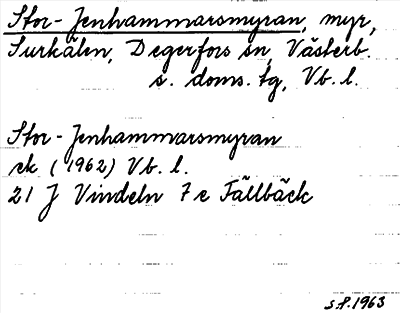 Stor-Jenhammarsmyran, myr,
Surkälen, Degerfors sn, Västerb.
s. doms. tg, Vb. l.
Stor-Jenhammarsmyran
ek (1962) Vb. l.
21 J Vindeln 7 e Fällbäck
S.P. 1963